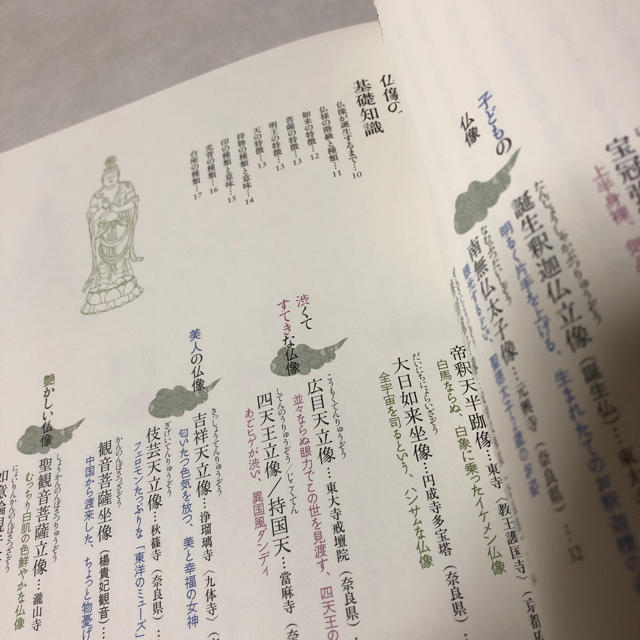 宝冠
上半身裸、
子どもの
仏像
たんじょうしゃかぶつりゅうぞう
誕生釈迦仏立像(誕生仏)…東
明るく片手を上げる、生まれたてのお釈迦様
なむぶつたいしぞう
南無仏太子像…元興寺(奈良県)…52
仏像の
基礎知識
仏像が誕生するまで…10
仏様の階級と種類…11
如来の特徴…12
菩薩の特徴…13
明王の特徴…13
天の特徴…13
持物の種類と意味…14
印の種類と意味…15
光背の種類…16
台座の種類…17
帝釈天半跏像…東寺(教王護国寺)(京都府
白馬ならぬ、白象に乗ったイケメン仏像
だいにちにょらいざぞう
大日如来坐像…円成寺多宝塔(奈良県)…
全宇宙を司るという、ハンサムな仏像
渋くて
すてきな仏像
こうもくてんりゅうぞう
広目天立像…東大寺戒壇院(奈良県)…
並々ならぬ眼力でこの世を見渡す、四天王の
してんのうりゅうぞう/じこくてん
四天王立像/持国天…當麻寺(奈
あごヒゲが渋い、異国風ダンディ
美人の仏像
きっしょうてんりゅうぞう
吉祥天立像…浄瑠璃寺(九体寺)(
匂いたつ色気を放つ、美と幸福の女神
ぎげいてんりゅうぞう
伎芸天立像…秋篠寺(奈良県)…
フェロモンたっぷりな「東洋のミューズ」
かんのんぼさつざぞう
観音菩薩坐像(楊貴妃観音)…
中国から渡来した、ちょっと物憂げ
艶かしい仏像
しょうかんのんぼさつりゅうぞう
聖観音菩薩立像…瀧山寺
むっちり白肌の色鮮やかな仏像
にょいりんかんのんぼさつざぞう
如意輪観音